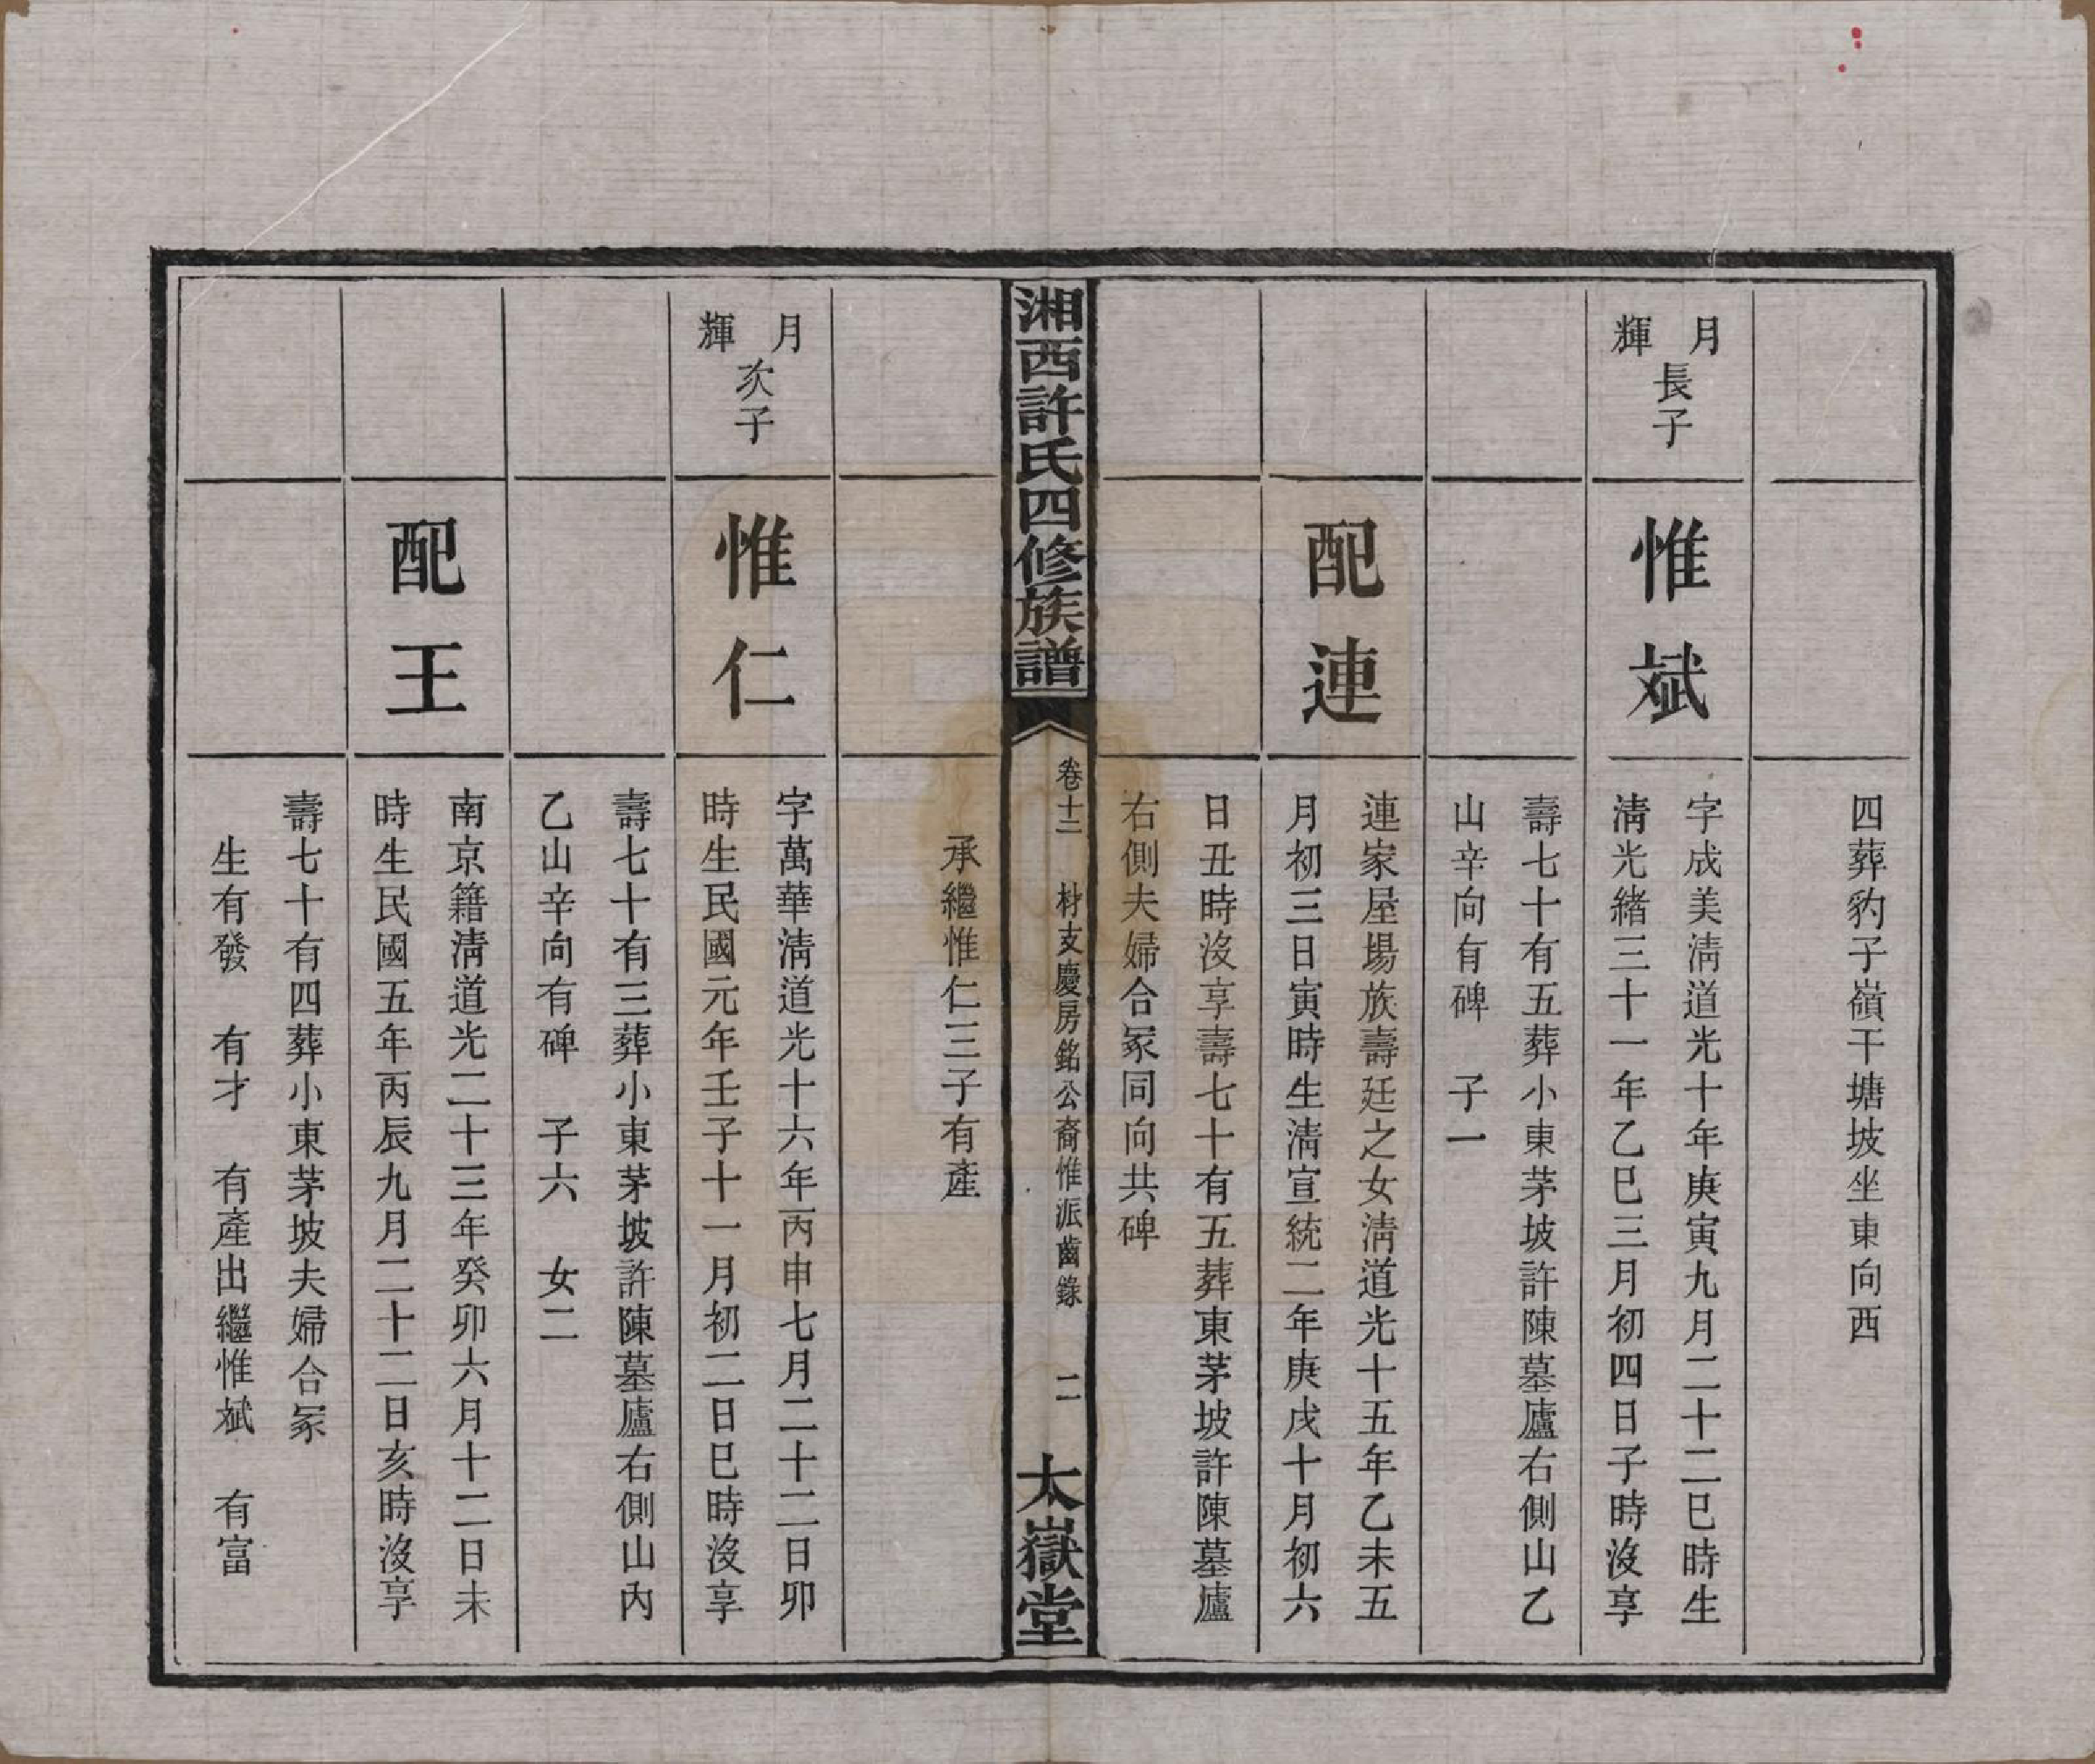 四葬豹子嶺干塘坡坐東向西
月輝長子
惟斌
字成美淸道光十年庚寅九月二十二巳時生
淸光緒三十一年乙巳三月初四日子時沒享
壽七十有五葬小東茅坡許陳墓廬右側山乙
山辛向有碑　子一
配連
連家屋場族壽廷之女淸道光十五年乙未五
月初三日寅時生淸宣統二年庚戌十月初六
日丑時沒享壽七十有五葬東茅坡許陳墓廬
右側夫婦合冢同向共碑
湘西許氏四修族譜
卷十二　材支慶房銘公裔惟派齒錄　二
太嶽堂
承繼惟仁三子有產
月輝次子
惟仁
字萬華淸道光十六年丙申七月二十二日卯
時生民國元年壬子十一月初二日巳時沒享
壽七十有三葬小東茅坡許陳墓廬右側山內
乙山辛向有碑　子六　女二
配王
南京籍淸道光二十三年癸卯六月十二日未
時生民國五年丙辰九月二十二日亥時沒享
壽七十有四葬小東茅坡夫婦合冢
生有發　有才　有產出繼惟斌　有富